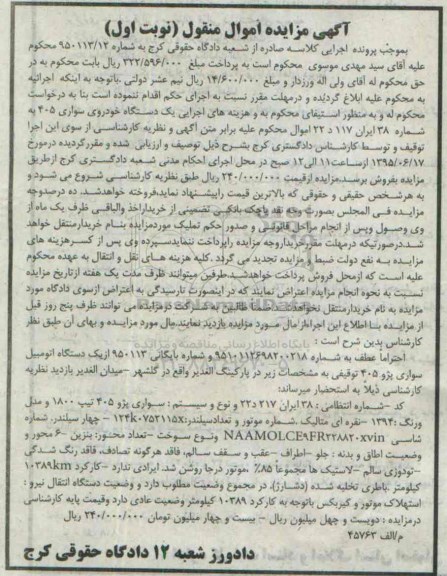 آگهی مزایده اموال منقول (نوبت اول)
بموجب پرونده اجرایی کلاسه صادره از شعبه دادگاه حقوقی کرج به شماره ۹۵۰۱۱۳/۱۲ محکوم
علیه آقای سید مهدی موسوی محکوم است به پرداخت مبلغ ۳۲۲/۵۹۶/۰۰۰ ریال بابت محکوم به در
حق محکوم له آقای ولی اله ورزدار و مبلغ ۱۴/۶۰۰/۰۰۰ ریال نیم عشر دولتی .باتوجه به اینکه اجرائیه
به محکوم علیه ابلاغ گردیده و درمهلت مقرر نسبت به اجرای حکم اقدام ننموده است بنا به درخواست
محکوم له و به منظور استیفای محکوم به و هزینه های اجرایی یک دستگاه خودروی سواری ۴۰۵ به
شماره ۳۸ ایران ۱۱۷ د ۲۲ اموال محکوم علیه برابر متن آگهی و نظریه کارشناسی از سوی این اجرا
توقیف و توسط کارشناس دادگستری کرج بشرح ذیل توصیف و ارزیابی شده و مقرر گردیده درمورخ
۱۳۹۵/۰۶/۱۷ ازساعت۱۱ الی۱۲ صبح در محل اجرای احکام مدنی شعبه دادگستری کرج ازطریق
مزایده بفروش برسد.مزایده ازقیمت ۲۴۰/۰۰۰/۰۰۰ ریال طبق نظریه کارشناسی شروع می شود و
به هرشخص حقیقی و حقوقی که بالاترین قیمت راپیشنهاد نمایدفروخته خواهدشد. ده درصدوجه
مزایده فی المجلس بصورت وجه نقد یاچک بانکی تضمینی از خریداراخذ والباقی ظرف یک ماه از
وی وصول وپس از انجام مراحل قانونی و صدور حکم تملیک موردمزایده بنام خریدارمنتقل خواهد
شد.درصورتیکه درمهلت مقررخریداروجه مزایده راپرداخت ننمایدسپرده وی پس از کسرهزینه های
مزایده به نفع دولت ضبط و مزایده تجدید می گردد .کلیه هزینه های نقل و انتقال به عهده محکوم
علیه است که ازمحل فروش پرداخت خواهدشد.طرفین میتوانند ظرف مدت یک هفته ازتاریخ مزایده
نسبت به نحوه انجام مزایده اعتراض نمایند که در اینصورت تارسیدگی به اعتراض ازسوی دادگاه مورد
مزایده به نام خریدارمنتقل نخواهدشد.ضمنا طالبین به شرکت درمزایده می توانند ظرف پنج روز قبل
از مزایده بنا اطلاع این اجراازمال مورد مزایده بازدید نمایند.مال مورد مزایده و بهای آن طبق نظر
کارشناس بدین شرح است :
احتراما عطف به شماره ۹۵۱۰۱۱۲۶۹۸۲۰۰۲۱۸ و شماره بایگانی ۹۵۰۱۱۳ ازیک دستگاه اتومبیل
سواری پژو ۴۰۵ توقیفی به مشخصات زیر در پارکینگ الغدیر واقع در گلشهر –میدان الغدیر بازدید نظریه
کارشناسی ذیلا به استحضار میرساند:
کد –شماره انتظامی : ۳۸ ایران ۲۱۷ د۲۲ و نوع و سیستم : سواری پژو ۴۰۵ تیپ ۱۸۰۰ و مدل
ورنگ :۱۳۹۴ –نقره ای متالیک .شماره موتور و تعدادسیلندر: – چهار سیلندر. شماره
شاسی و نوع سوخت –تعداد محتور: بنزین –۶ محور و
وضعیت اطاق و بدنه : جلو –اطراف –عقب و سقف سالم، فاقد هرگونه تصادف، فاقد رنگ شدگی
–تودوزی سالم –لاستیک ها مجموعا ۸۵٪ .موتور درجا روشن شد. ایرادی ندارد –کارکرد ۱۰۳۸۹km
کیلومتر .باطری تخلیه شده (دشارژ). در مجموع وضعیت مطلوب دارد و وضعیت دستگاه انتقال نیرو :
استهلاک موتور و گیربکس باتوجه به کارکرد ۱۰۳۸۹ کیلومتر وضعیت عادی دارد وقیمت پایه کارشناسی
درمزایده : دویست و چهل میلیون ریال – بیست و چهار میلیون تومان ۲۴۰/۰۰۰/۰۰۰ ریال
م/الف ۴۵۷۶۳
دادورز شعبه ۱۲ دادگاه حقوقی کرج